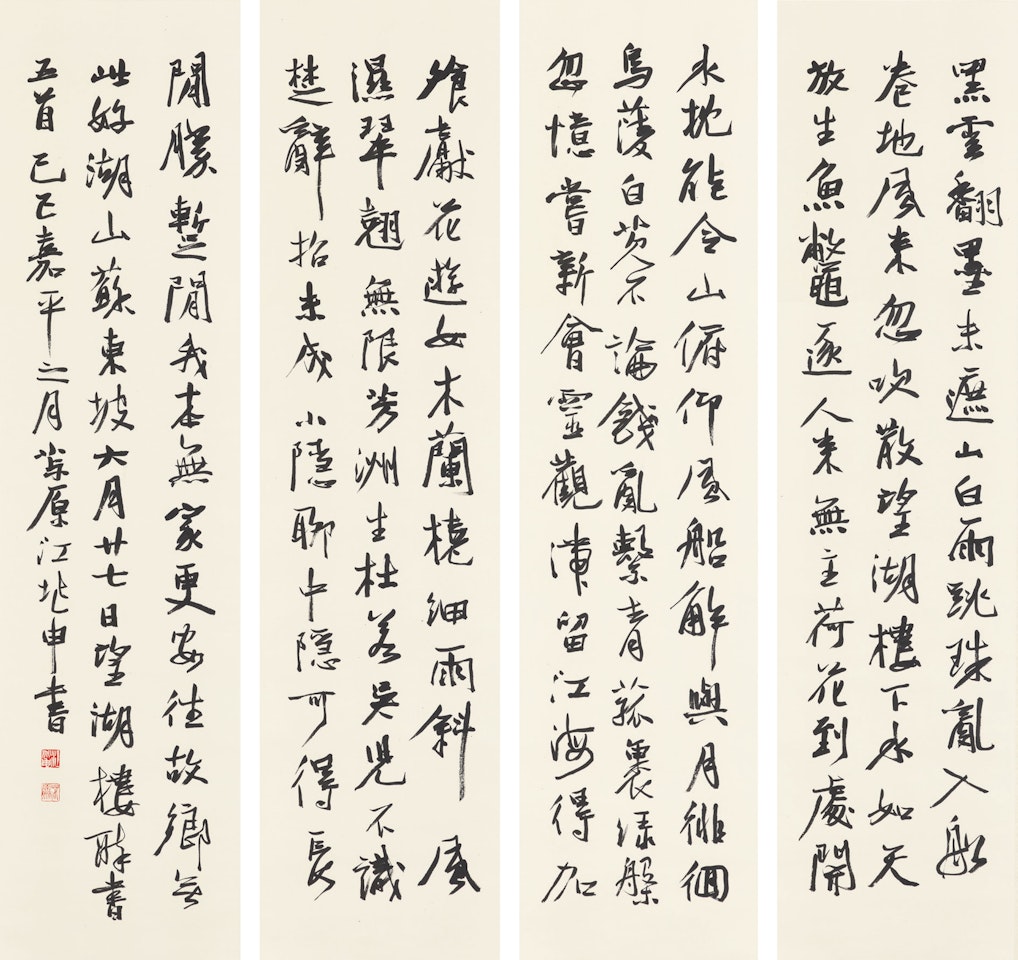 黑雲翻墨未遮山白雨跳珠亂入船
卷地風来忽吹散望湖樓下水如天
放生魚鱉逐人来無主荷花到處開
水枕能令山俯仰風船解與月徘徊
烏菱白芡不論錢亂繫青菰裹綠盤
忽憶嘗新會靈觀滯留江海得加
飧獻花遊女木蘭橈細雨斜風
濕翠翹無限芳洲生杜若吳児不識
楚辭招未成小隱聊中隱可得長
閒勝暫閒我本無家更安往故鄉無
此好湖山蘇東坡六月廿七日望湖樓醉書
五首己巳嘉平之月茮原江兆申書